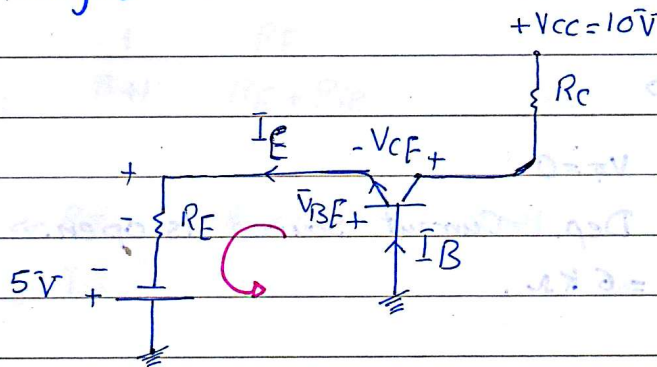 +VCC=10V
RC
IE
-VCE+
+
-
RE
VBE+
IB
5V
-
+